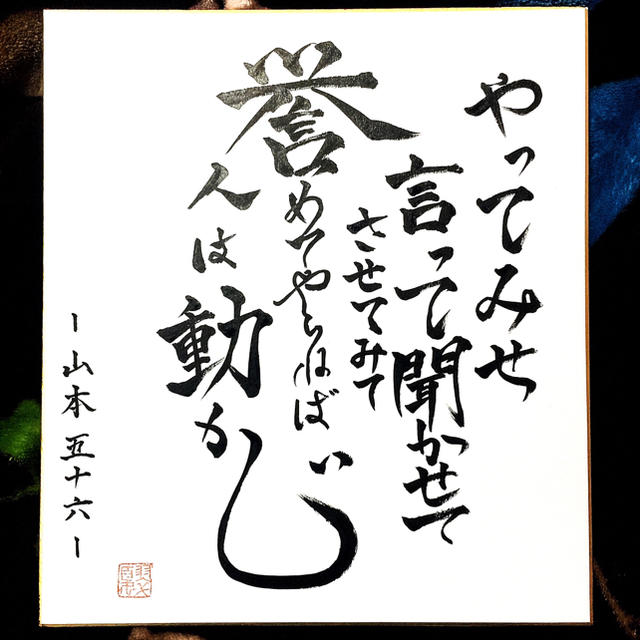 やってみせ
言って聞かせて
させてみて
誉めてやらねば
人は動かじ
ー山本五十六ー